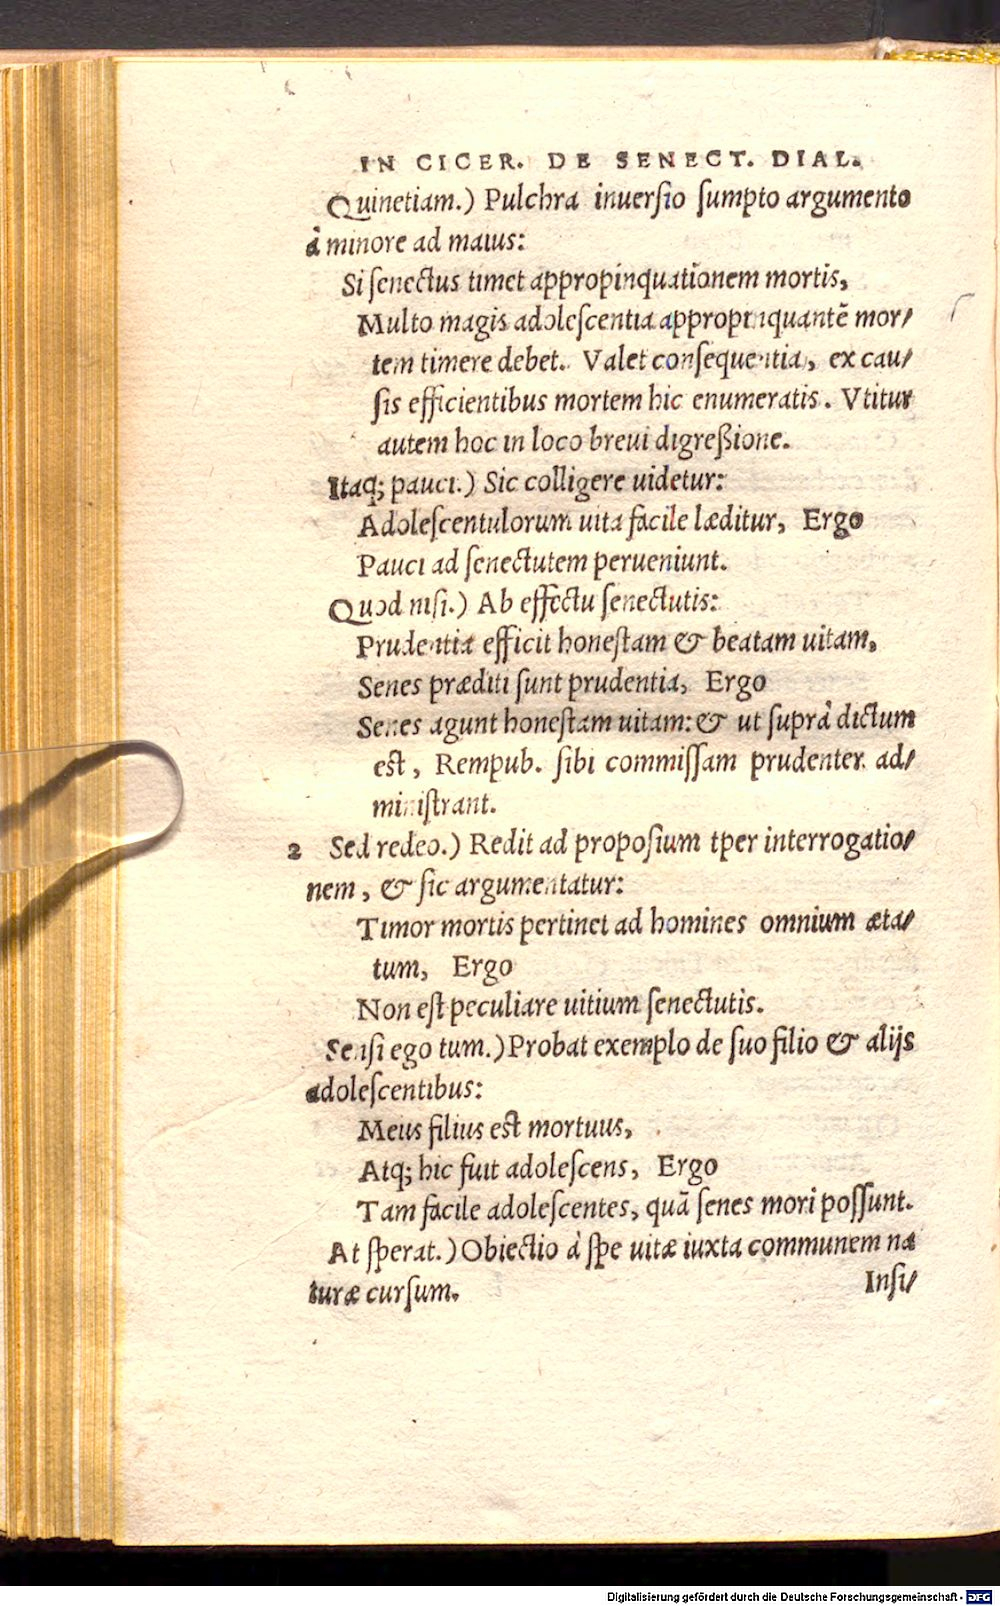 IN CICER. DE SENECT. DIAL.
Quinetiam.) Pulchra inuersio sumpto argumento
à minore ad maius:
Si senectus timet appropinquationem mortis,
Multo magis adolescentia appropinquantē mor/
tem timere debet. Valet consequentia, ex cau/
sis efficientibus mortem hic enumeratis. Vtitur
autem hoc in loco breui digreßione.
Itaq; pauci.) Sic colligere uidetur:
Adolescentulorum uita facile læditur, Ergo
Pauci ad senectutem perueniunt.
Quod nisi.) Ab effectu senectutis:
Prudentia efficit honestam & beatam uitam,
Senes præditi sunt prudentia, Ergo
Senes agunt honestam uitam: & ut suprà dictum
est, Rempub. sibi commissam prudenter ad/
ministrant.
2 Sed redeo.) Redit ad proposium tper interrogatio/
nem, & sic argumentatur:
Timor mortis pertinet ad homines omnium æta/
tum, Ergo
Non est peculiare uitium senectutis.
Sensi ego tum.) Probat exemplo de suo filio & alijs
adolescentibus:
Meus filius est mortuus,
Atq; hic fuit adolescens, Ergo
Tam facile adolescentes, quā senes mori possunt.
At sperat.) Obiectio à spe uitæ iuxta communem na
turæ cursum.
Insi/
Digitalisierung gefördert durch die Deutsche Forschungsgemeinschaft - DFG